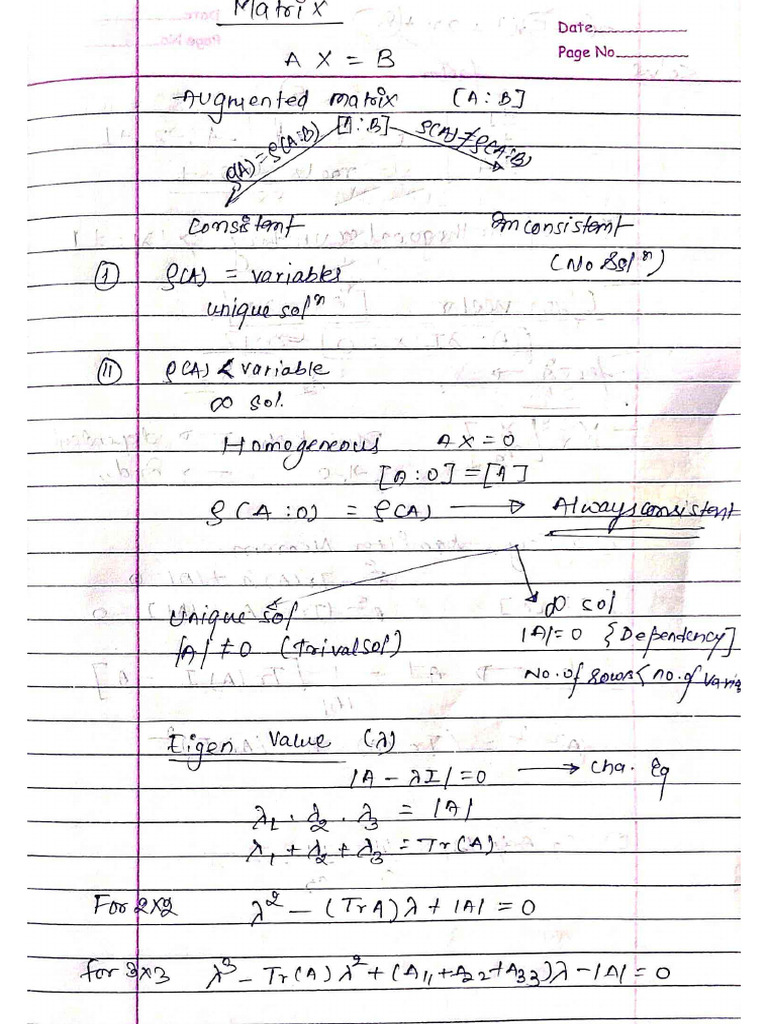 Matrix
Date
Page No.
A X = B
Augmented matrix [A : B]
[A : B]
ρ(A) = ρ(A:B)
ρ(A) ≠ ρ(A:B)
Consistent
Inconsistent
(No Solⁿ)
(I) ρ(A) = variables
unique solⁿ
(II) ρ(A) < variable
∞ sol.
Homogeneous AX = 0
[A : 0] = [A]
ρ(A : 0) = ρ(A) → Always consistent
Unique sol
∞ sol
|A| ≠ 0 (Trival sol)
|A| = 0 {Dependency]
No. of rows < no. of varia
Eigen Value (λ)
|A - λI| = 0 → Cha. Eq
λ₁ . λ₂ . λ₃ = |A|
λ₁ + λ₂ + λ₃ = Tr(A)
For 2x2 λ² - (TrA)λ + |A| = 0
for 3x3 λ³ - Tr(A)λ² + (A₁₁+A₂₂+A₃₃)λ - |A| = 0